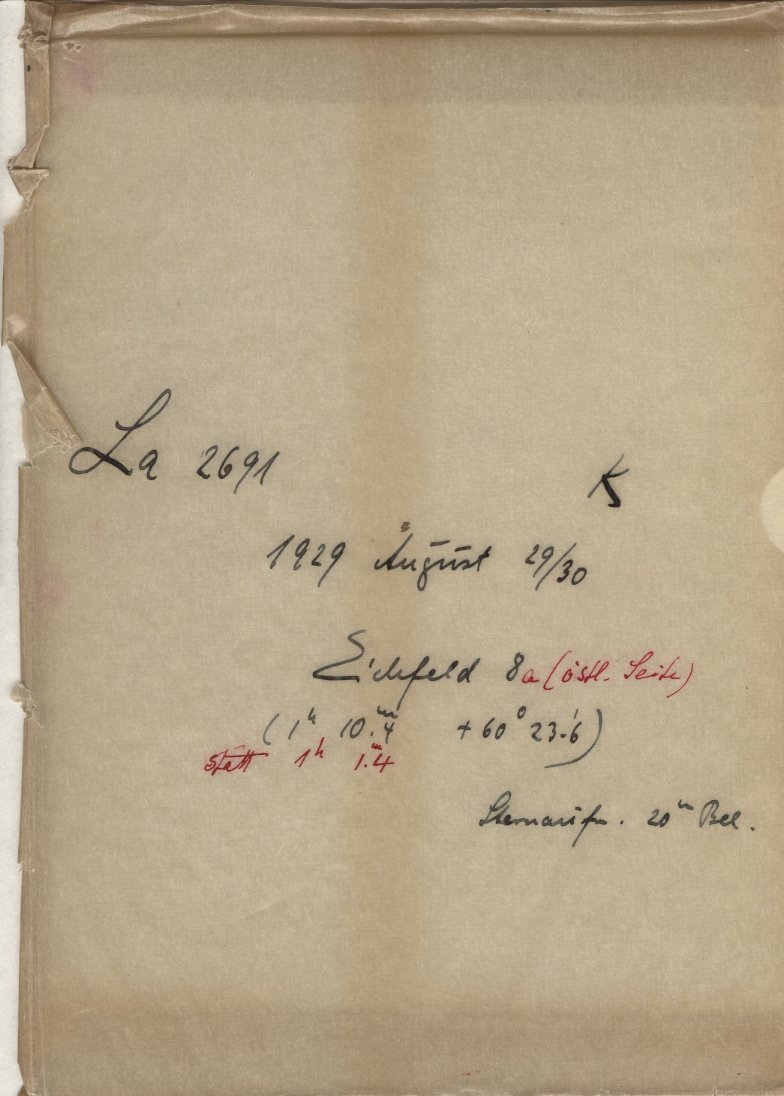 La 2691 K
1929 August 29/30
Eichfeld 8a (östl. Seite)
(1ʰ 10.ᵐ4 +60° 23.'6)
statt 1ʰ 1.ᵐ4
Sternaufn. 20ᵐ Bel.